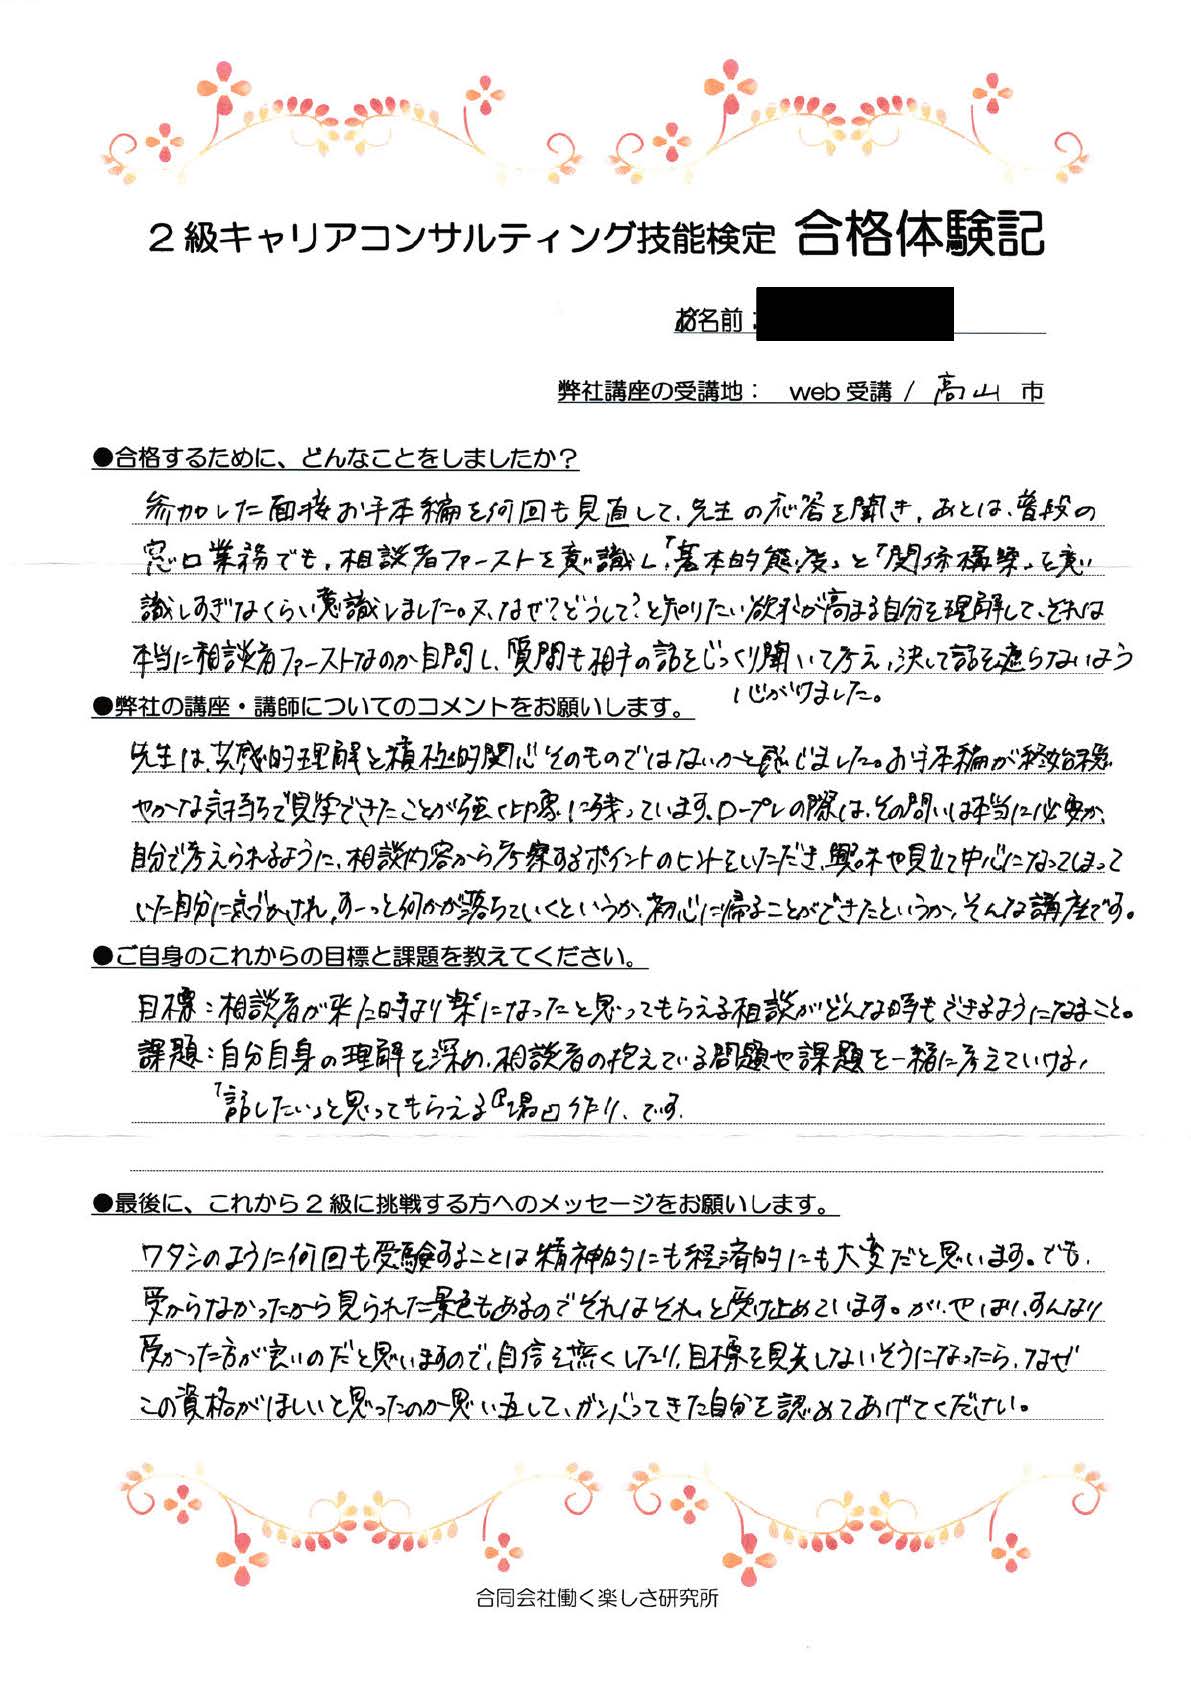 2級キャリアコンサルティング技能検定 合格体験記
お名前:
弊社講座の受講地: web受講 / 高山 市
●合格するために、どんなことをしましたか?
参加した面接お手本編を何回も見直して、先生の応答を聞き、あとは、普段の
窓口業務でも、相談者ファーストを意識し、「基本的態度」と「関係構築」を意
識しすぎなくらい意識しました。又、なぜ?どうして?と知りたい欲求が高まる自分を理解して、それは
本当に相談者ファーストなのか自問し、質問も相手の話をじっくり聞いて考え、決して話を遮らないよう
心がけました。
●弊社の講座・講師についてのコメントをお願いします。
先生は、共感的理解と積極的関心そのものではないかと感じました。お手本編が終始穏
やかな気持ちで見学できたことが強く印象に残っています。ロープレの際は、その問いは本当に必要か、
自分で考えられるように、相談内容から考察するポイントのヒントをいただき、興味や見立て中心になってしまって
いた自分に気づかされ、すーっと何かが落ちていくというか、初心に帰ることができたというか、そんな講座です。
●ご自身のこれからの目標と課題を教えてください。
目標:相談者が来た時より"楽"になったと思ってもらえる相談がどんな時もできるようになること。
課題:自分自身の理解を深め、相談者の抱えている問題や課題を一緒に考えていける、
「話したい」と思ってもらえる『場』作り、です。
●最後に、これから2級に挑戦する方へのメッセージをお願いします。
ワタシのように何回も受験することは精神的にも経済的にも大変だと思います。でも、
受からなかったから見られた景色もあるのでそれはそれ、と受け止めています。が、やはり、すんなり
受かった方が良いのだと思いますので、自信を無くしたり、目標を見失しないそうになったら、なぜ
この資格がほしいと思ったのか思い直して、ガンバってきた自分を認めてあげてください。
合同会社働く楽しさ研究所